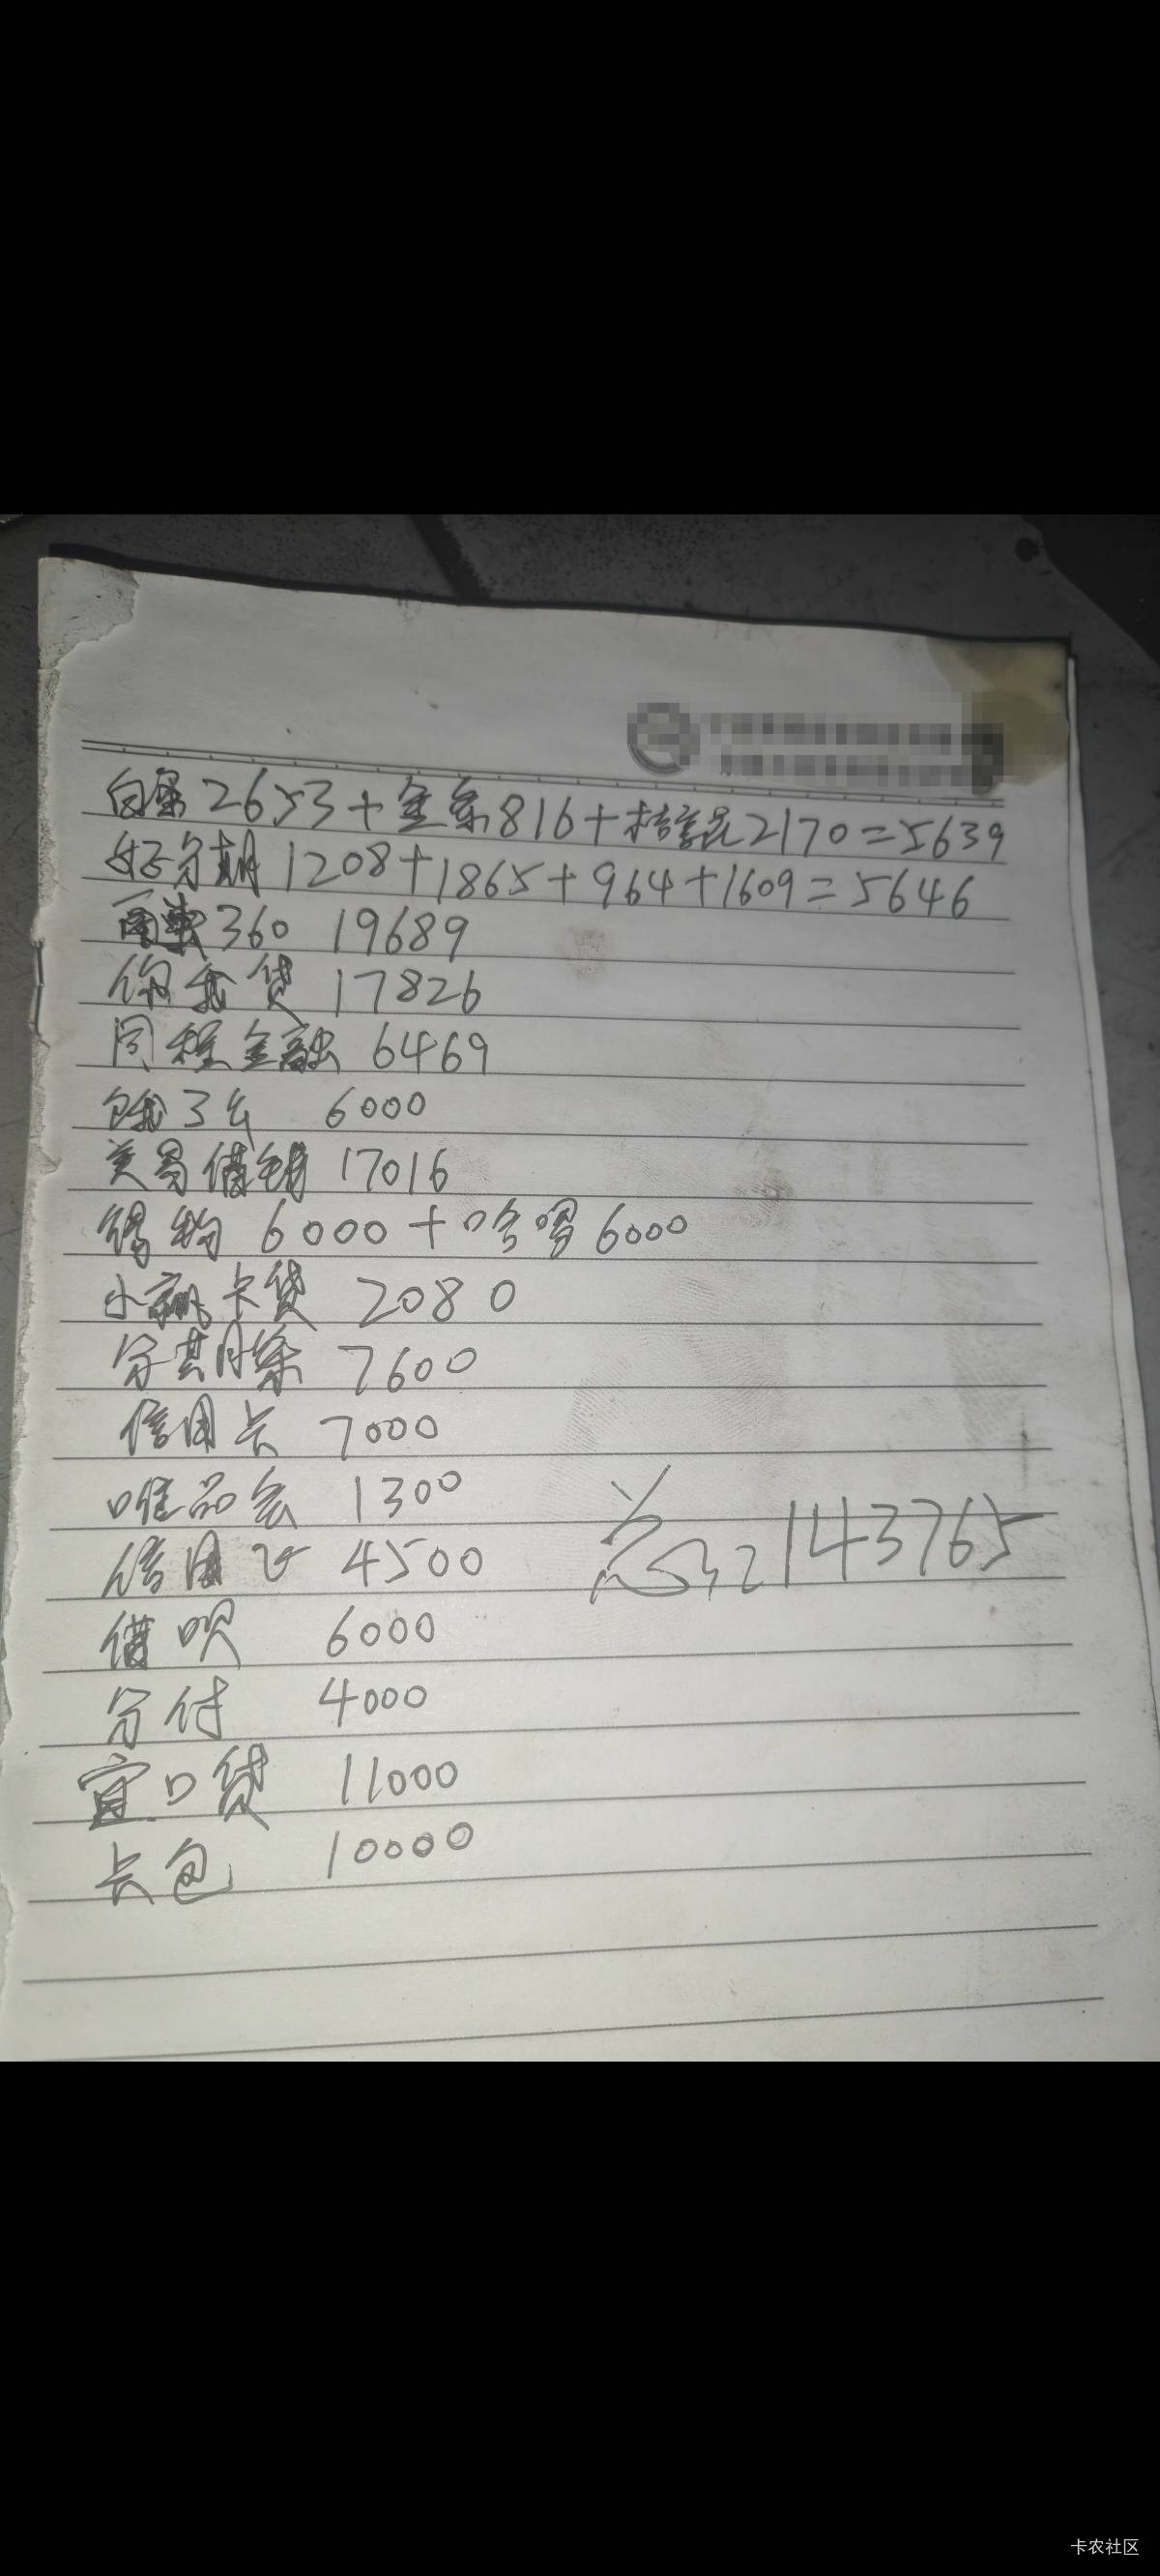 白条2653+金条816+2170=5639
好分期 1208+1865+964+1609=5646
360 19689
你我贷 17826
同程金融 6469
饿了么 6000
美易借钱 17016
得物 6000+哈啰6000
小赢卡贷 2080
分期乐 7600
信用卡 7000
唯品会 1300
信用飞 4500
总:143765
借呗 6000
分付 4000
宜口贷 11000
卡包 10000
卡农社区